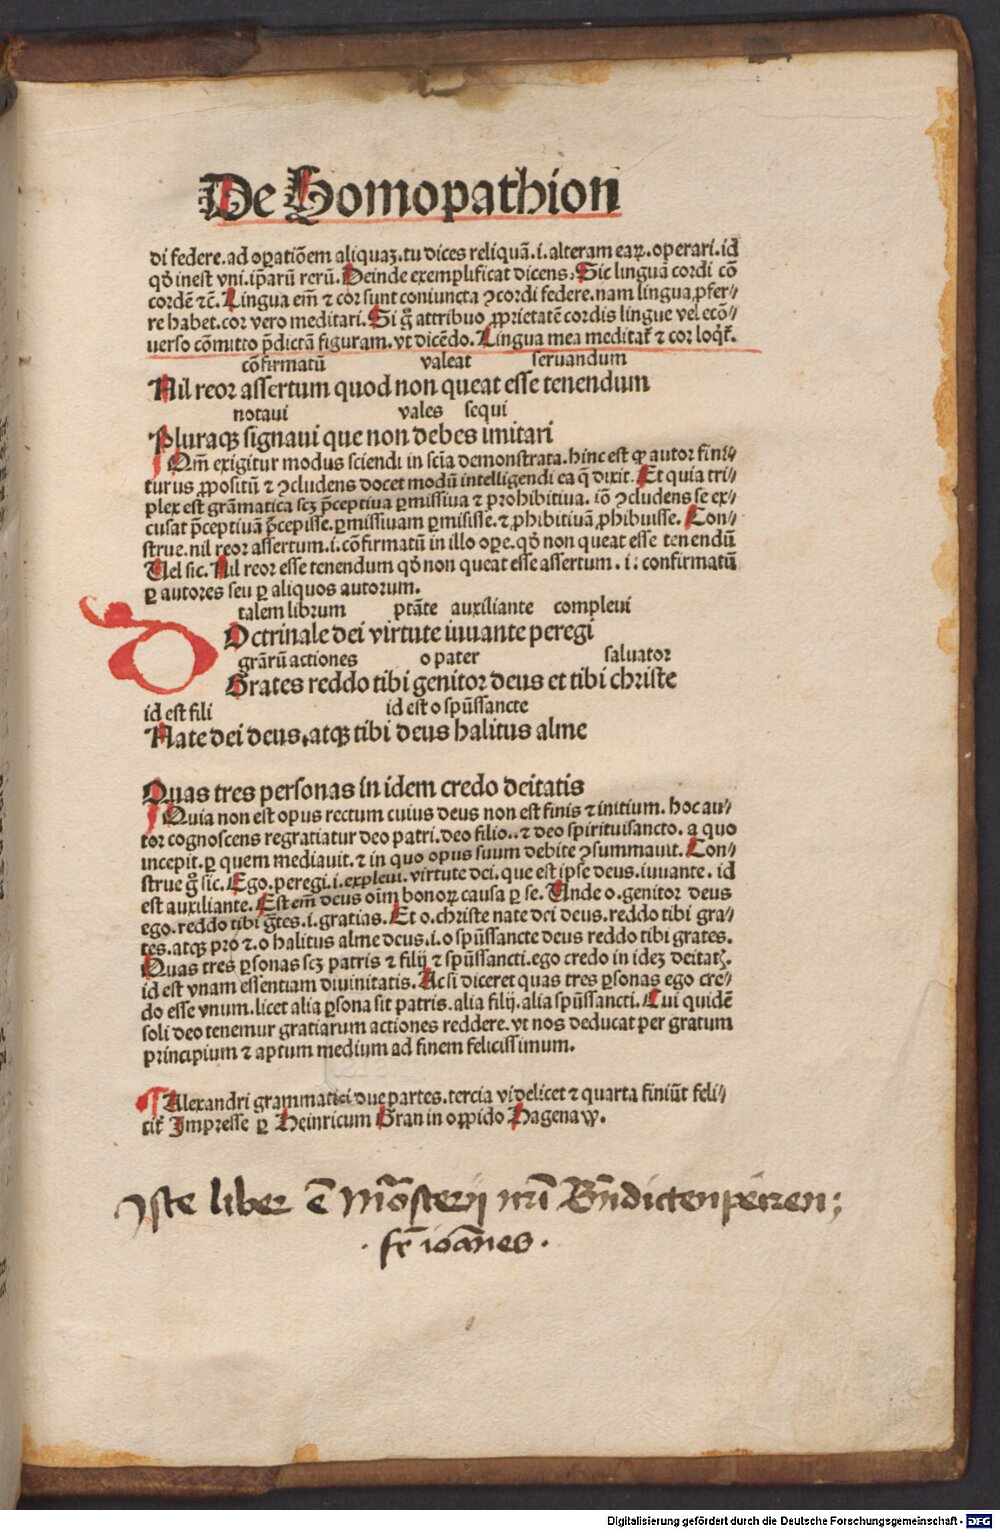 De Homopathion
di federe. ad oꝑatiõem aliquaʒ. tu dices reliquã. i. alteram eaꝝ. operari. id
qđ inest vni. ip̃arũ rerũ. Deinde exemplificat dicens. Sic linguã cordi cõ
cordẽ ⁊c̃. Lingua em̃ ⁊ cor sunt coniuncta ꝯcordi federe. nam lingua ꝓfer⸗
re habet. cor vero meditari. Si g̊ attribuo ꝓprietatẽ cordis lingue vel ecõ⸗
uerso cõmitto p̃dictã figuram. vt dicẽdo. Lingua mea meditat᷑ ⁊ cor loqt᷑.
cõfirmatũ valeat seruandum
Nil reor assertum quod non queat esse tenendum
notaui vales sequi
Pluraqꝫ signaui que non debes imitari
Qm̃ exigitur modus sciendi in scĩa demonstrata. hinc est ꝙ autor fini⸗
turus ꝓpositũ ⁊ ꝯcludens docet modũ intelligendi ea q̃ dixit. Et quia tri⸗
plex est grãmatica scʒ p̃ceptiua ꝑmissiua ⁊ prohibitiua. iõ ꝯcludens se ex⸗
cusat p̃ceptiuã p̃cepisse. ꝑmissiuam ꝑmisisse. ⁊ ꝓhibitiuã ꝓhibuisse. Con⸗
strue. nil reor assertum. i. cõfirmatũ in illo oꝑe. qđ non queat esse tenendũ
Uel sic. Nil reor esse tenendum qđ non queat esse assertum. i: confirmatũ
ꝑ autores seu ꝑ aliquos autorum.
talem librum ptãte auxiliante compleui
Doctrinale dei virtute iuuante peregi
grãrũ actiones o pater saluator
Grates reddo tibi genitor deus et tibi christe
id est fili id est o spũssancte
Nate dei deus, atqꝫ tibi deus halitus alme
Quas tres personas in idem credo deitatis
Quia non est opus rectum cuius deus non est finis ⁊ initium. hoc au⸗
tor cognoscens regratiatur deo patri. deo filio.. ⁊ deo spirituisancto. a quo
incepit. ꝑ quem mediauit. ⁊ in quo opus suum debite ꝯsummauit. Con⸗
strue g̊ sic. Ego. peregi. i. expleui. virtute dei. que est ipse deus. iuuante. id
est auxiliante. Est em̃ deus oĩm bonoꝝ causa ꝑ se. Unde o. genitor deus
ego. reddo tibi g̃tes. i. gratias. Et o. christe nate dei deus. reddo tibi gra⸗
tes. atqꝫ pro ⁊. o halitus alme deus. i. o spũssancte deus reddo tibi grates.
Quas tres ꝑsonas scʒ patris ⁊ filij ⁊ spũssancti. ego credo in ideʒ deitatꝭ.
id est vnam essentiam diuinitatis. Acsi diceret quas tres ꝑsonas ego cre⸗
do esse vnum. licet alia ꝑsona sit patris. alia filij. alia spũssancti. Cui quidẽ
soli deo tenemur gratiarum actiones reddere. vt nos deducat per gratum
principium ⁊ aptum medium ad finem felicissimum.
¶ Alexandri grammatici due partes. tercia videlicet ⁊ quarta finiũt feli⸗
cit᷑ Impresse ꝑ Heinricum Gran in oppido Hagenaw.
Iste liber ẽ Mõsterij nr̃i Bñdictenpeiren;
· fr̃ ioãnes ·
Digitalisierung gefördert durch die Deutsche Forschungsgemeinschaft - DFG